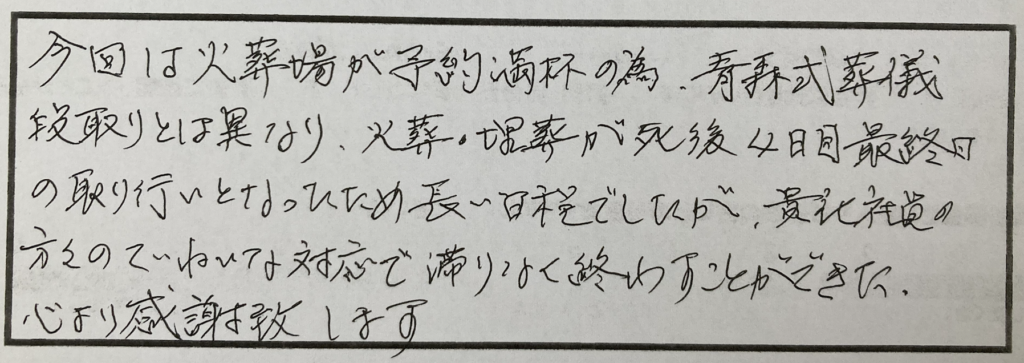 今回は火葬場が予約満杯の為、青森式葬儀
段取りとは異なり、火葬・埋葬が死後4日目最終日
の取り行いとなったため長い日程でしたが、貴社社員の
方々のていねいな対応で滞りなく終わすことができた、
心より感謝致します